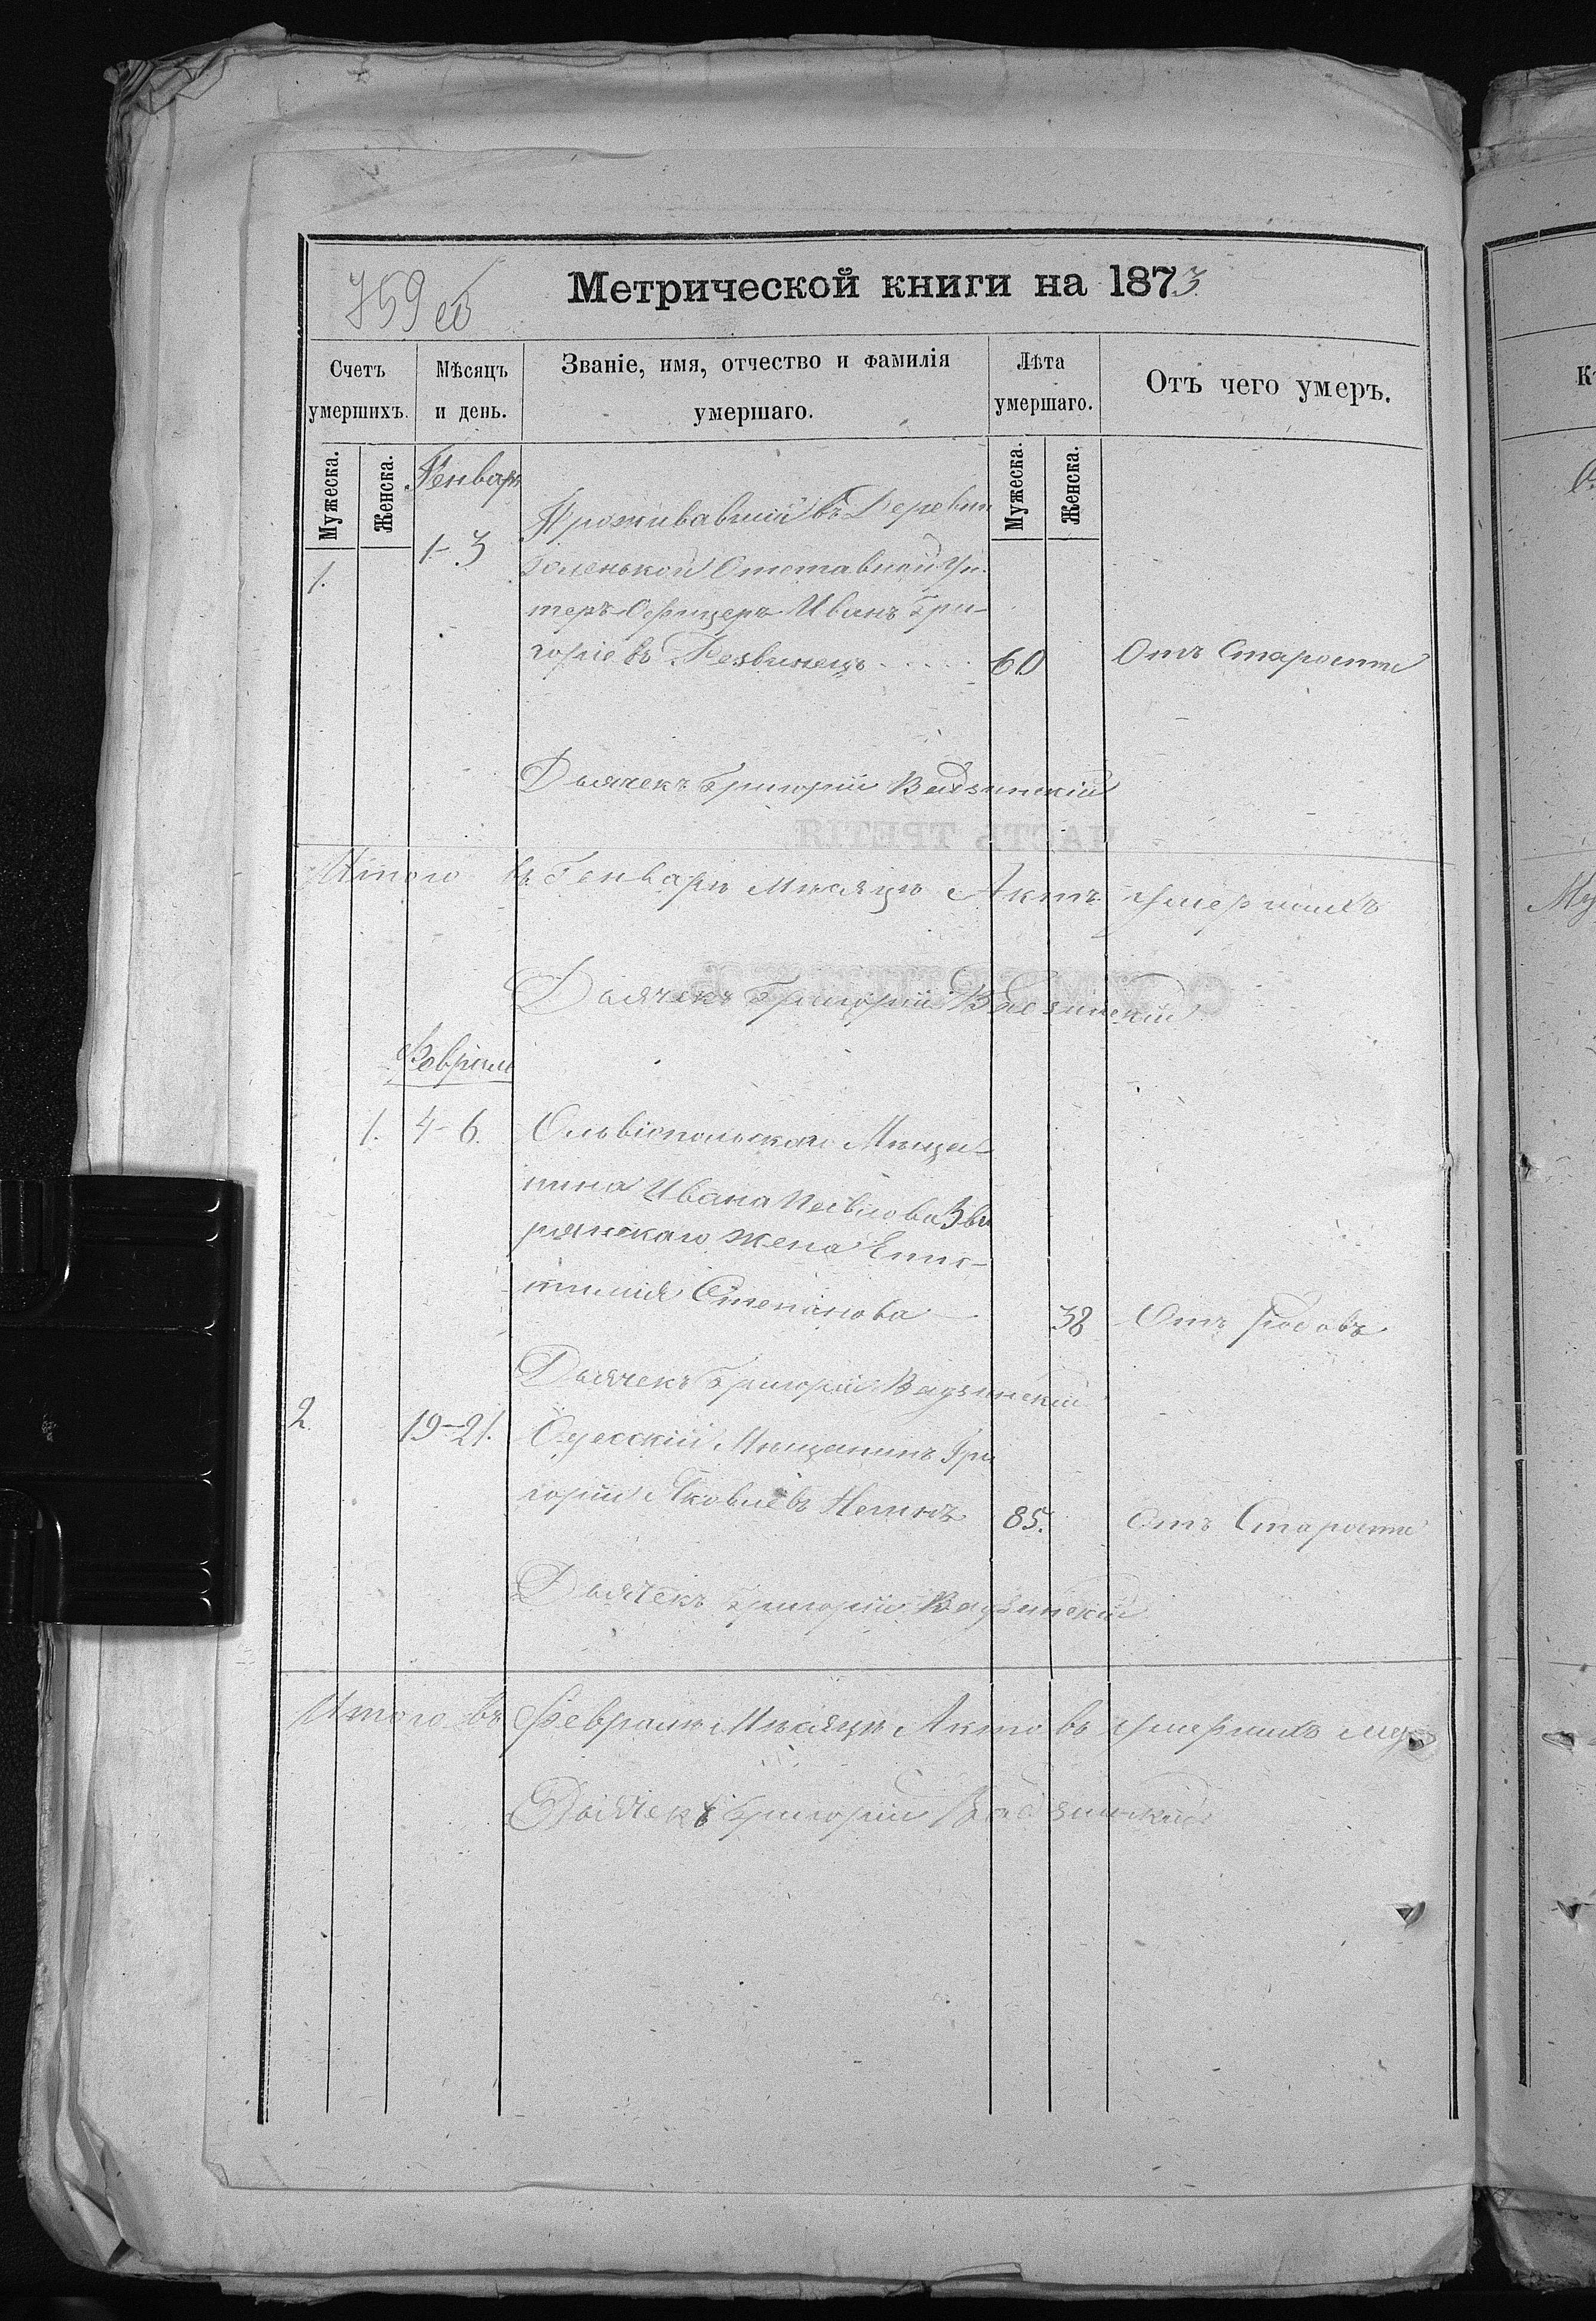 759 об
Метрической книги на 1873.
Счетъ умершихъ.
Мѣсяцъ и день.
Званіе, имя, отчество и фамилія умершаго.
Лѣта умершаго.
Отъ чего умеръ.
Мужеска.
Женска.
Мужеска.
Женска.
Генварь
1.
1-3
Проживавшій въ Деревни
Отставной Ун-
теръ-Офицеръ Иванъ Гри-
горіевъ
60
Отъ Старости
Дьячекъ Григорій
ЧАСТЬ ТРЕТІЯ
Итого въ Генварѣ Мѣсяцѣ Актъ умершихъ
Дьячекъ Григорій
Февраль
1.
4-6.
Ольвіопольскаго Мѣща-
нина Ивана
жена
Степанова
38
Отъ Родовъ
Дьячекъ Григорій
2.
19-21.
Одесскій Мѣщанинъ Гри
горій Яковлевъ
85.
Отъ Старости
Дьячекъ Григорій
Итого въ Февралѣ Мѣсяцѣ Актовъ умершихъ муж
Дьячекъ Григорій